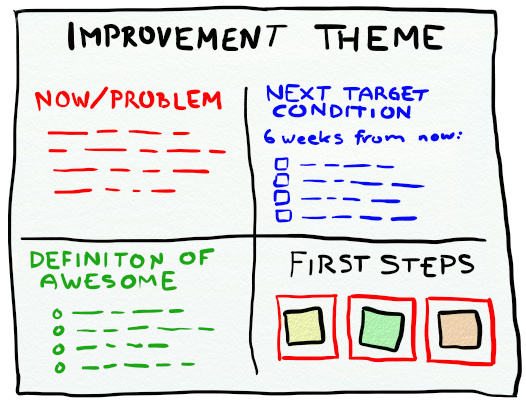 IMPROVEMENT THEME
NOW/PROBLEM
NEXT TARGET
CONDITION
6 weeks from now:
DEFINITON OF
AWESOME
FIRST STEPS